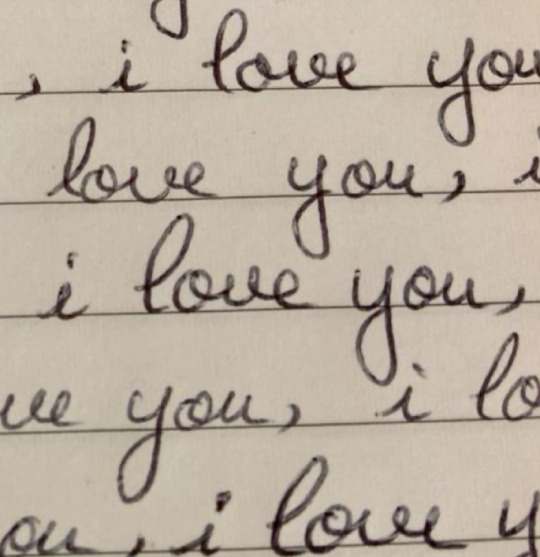 , i love you
love you, i
i love you,
ve you, i lo
ou, i love y